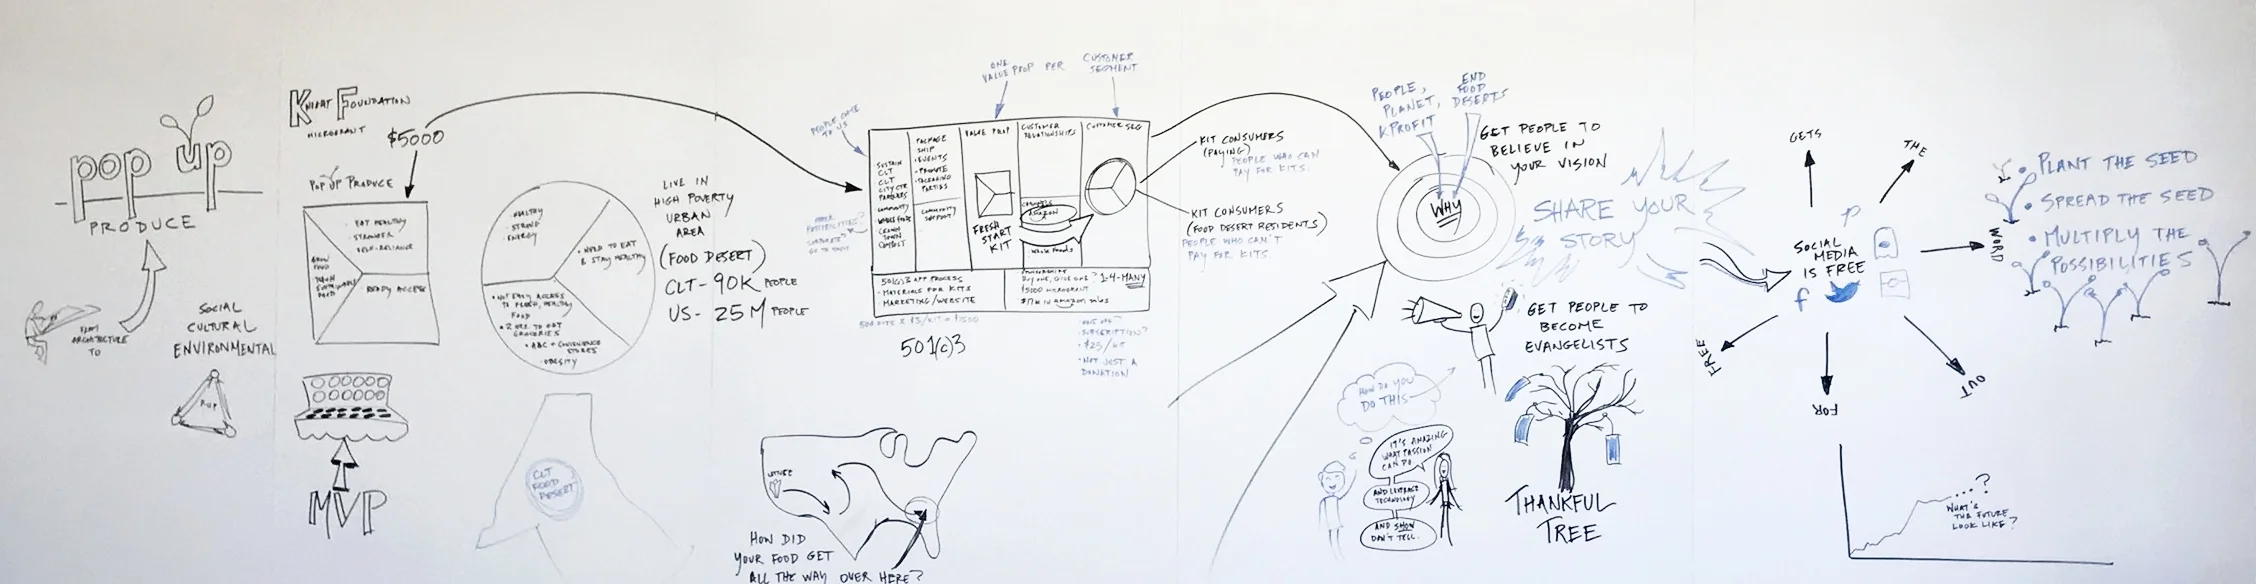 pop up
PRODUCE
FROM
ARCHITECTURE
TO
SOCIAL
CULTURAL
ENVIRONMENTAL
P-UP
KNIGHT FOUNDATION
MICROGRANT
$5000
POP UP PRODUCE
EAT HEALTHY
STRONGER
SELF-RELIANCE
GROW
FOOD
READY ACCESS
MVP
HEALTHY
STRONG
ENERGY
• NEED TO EAT
& STAY HEALTHY
• NOT EASY ACCESS
TO FRESH, HEALTHY
FOOD
• 2 HRS. TO GET
GROCERIES
• ABC + CONVENIENCE
STORES
• OBESITY
LIVE IN
HIGH POVERTY
URBAN
AREA
(FOOD DESERT)
CLT- 90K PEOPLE
US- 25M PEOPLE
CLT
FOOD
DESERT
LETTUCE
HOW DID
YOUR FOOD GET
ALL THE WAY OVER HERE?
PEOPLE COME
TO US
ONE
VALUE PROP PER
CUSTOMER
SEGMENT
SUSTAIN
CLT
CLT
CITY CTR
PARTNERS
COMMUNITY
WHOLE FOODS
CROWN
TOWN
COMPOST
PACKAGE
SHIP
• EVENTS
• PROMOTE
• PACKAGING
PARTIES
COMMUNITY
SUPPORT
VALUE PROP
FRESH
START
KIT
CUSTOMER
RELATIONSHIPS
CHANNELS
AMAZON
WHOLE FOODS
CUSTOMER SEG
501(c)3 APP PROCESS
• MATERIALS FOR KITS
MARKETING/WEBSITE
SPONSORSHIP
BUY ONE, GIVE ONE?
$5000 MICROGRANT
1-4-MANY
IN AMAZON SALES
500 KITS X $3/KIT = $1500
501(c)3
SUBSCRIPTION?
• $25/KIT
• NOT JUST A
DONATION
KIT CONSUMERS
(PAYING)
PEOPLE WHO CAN
PAY FOR KITS.
KIT CONSUMERS
(FOOD DESERT RESIDENTS)
PEOPLE WHO CAN'T
PAY FOR KITS.
PEOPLE,
PLANET,
& PROFIT
END
FOOD
DESERTS
WHY
GET PEOPLE TO
BELIEVE IN
YOUR VISION
SHARE YOUR
STORY
GET PEOPLE TO
BECOME
EVANGELISTS
HOW DO YOU
DO THIS
IT'S AMAZING
WHAT PASSION
CAN DO
AND LEVERAGE
TECHNOLOGY
AND SHOW
DON'T TELL.
THANKFUL
TREE
SOCIAL
MEDIA
IS FREE
GETS
THE
WORD
OUT
FOR
FREE
• PLANT THE SEED
• SPREAD THE SEED
• MULTIPLY THE
POSSIBILITIES
...?
WHAT'S
THE FUTURE
LOOK LIKE?